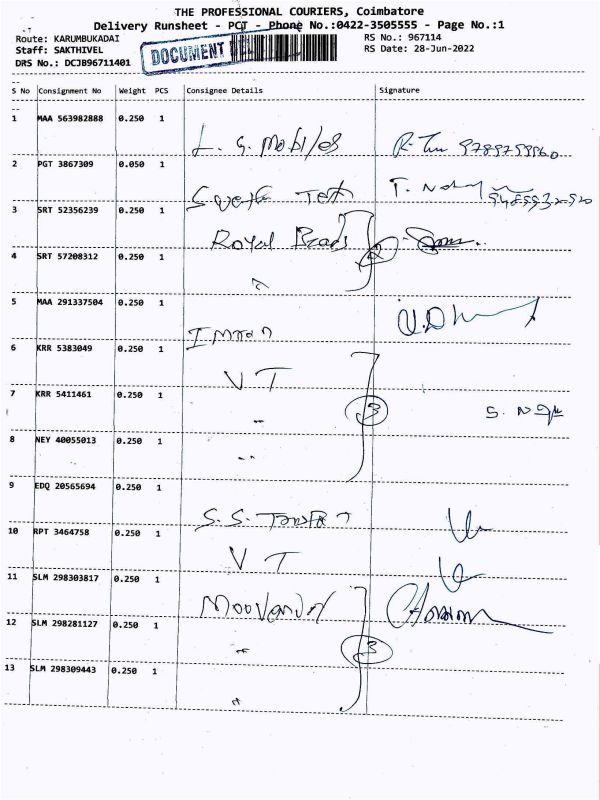 THE PROFESSIONAL COURIERS, Coimbatore
Delivery Runsheet - PCT - Phone No.:0422-3505555 - Page No.:1
Route: KARUMBUKADAI RS No.: 967114
Staff: SAKTHIVEL RS Date: 28-Jun-2022
DOCUMENT
DRS No.: DCJB96711401
S No Consignment No Weight PCS Consignee Details Signature
1 MAA 563982888 0.250 1
L. S. Mobiles
2 PGT 3867309 0.050 1
3 SRT 52356239 0.250 1
Royal Brads 2
4 SRT 57208312 0.250 1
5 MAA 291337504 0.250 1
Imran
6 KRR 5383049 0.250 1
V T
7 KRR 5411461 0.250 1
3
8 NEY 40055013 0.250 1
9 EDQ 20565694 0.250 1
S. S.
10 RPT 3464758 0.250 1
V T
11 SLM 298303817 0.250 1
12 SLM 298281127 0.250 1
3
13 SLM 298309443 0.250 1